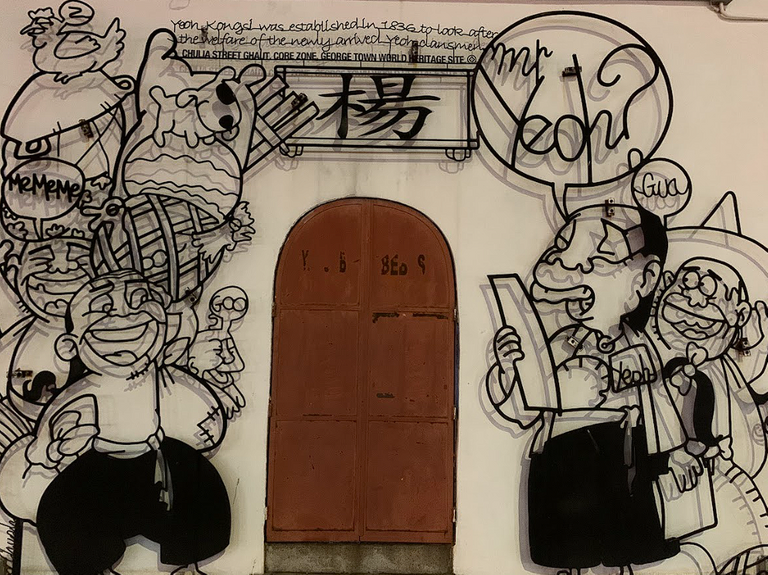 Yeoh Kongsi was established in 1836 to look after
the welfare of the newly arrived Yeoh clansmen.
CHULIA STREET GHAUT, CORE ZONE, GEORGE TOWN WORLD HERITAGE SITE ©
楊
Mr
Yeoh?
Gua
MeMeMe
Yeoh